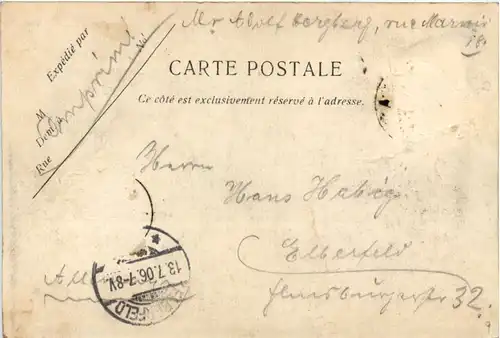 Mr Adolf Bergberg, rue Marnix
18.
Expédié par
M
Demt à No.
Rue
Imprimé
CARTE POSTALE
Ce côté est exclusivement réservé à l'adresse.
Herrn
Hans Habig
Elberfeld
Flensburgerstr 32.
13.7.06.7-8V.